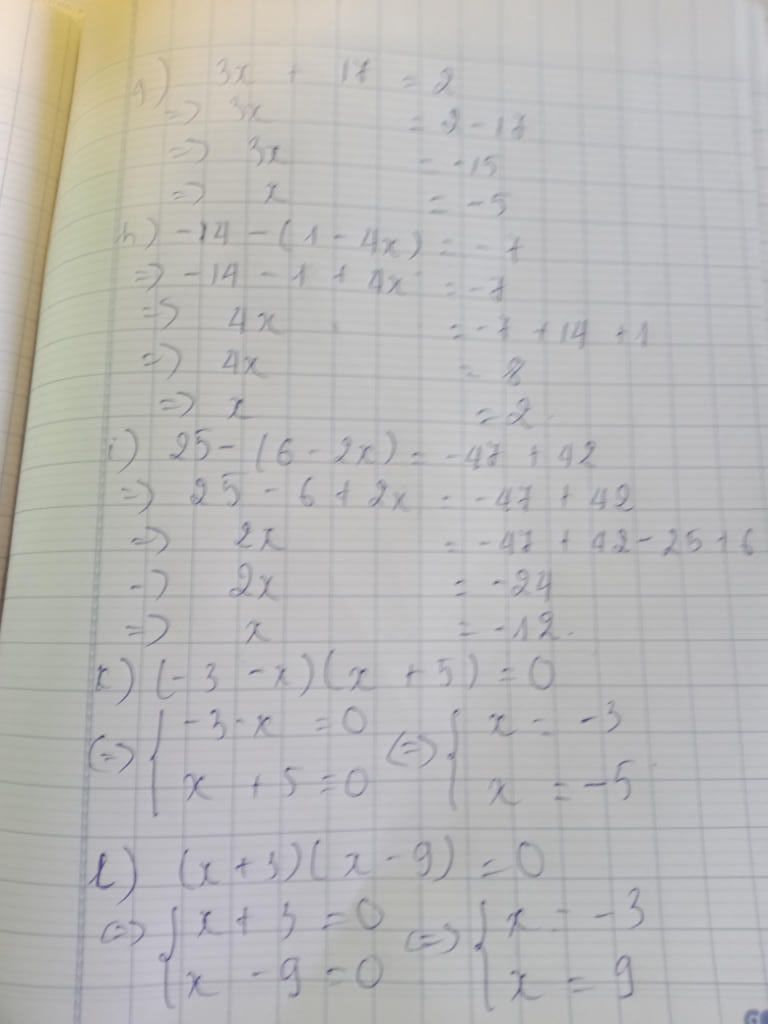 g) 3x + 17 = 2
=> 3x = 2 - 17
=> 3x = -15
=> x = -5
h) -14 - (1 - 4x) = -7
=> -14 - 1 + 4x = -7
=> 4x = -7 + 14 + 1
=> 4x = 8
=> x = 2
i) 25 - (6 - 2x) = -47 + 42
=> 25 - 6 + 2x = -47 + 42
=> 2x = -47 + 42 - 25 + 6
=> 2x = -24
=> x = -12.
k) (-3 - x)(x + 5) = 0
<=> { -3 - x = 0 <=> { x = -3
x + 5 = 0 x = -5
l) (x + 3)(x - 9) = 0
<=> { x + 3 = 0 <=> { x = -3
x - 9 = 0 x = 9